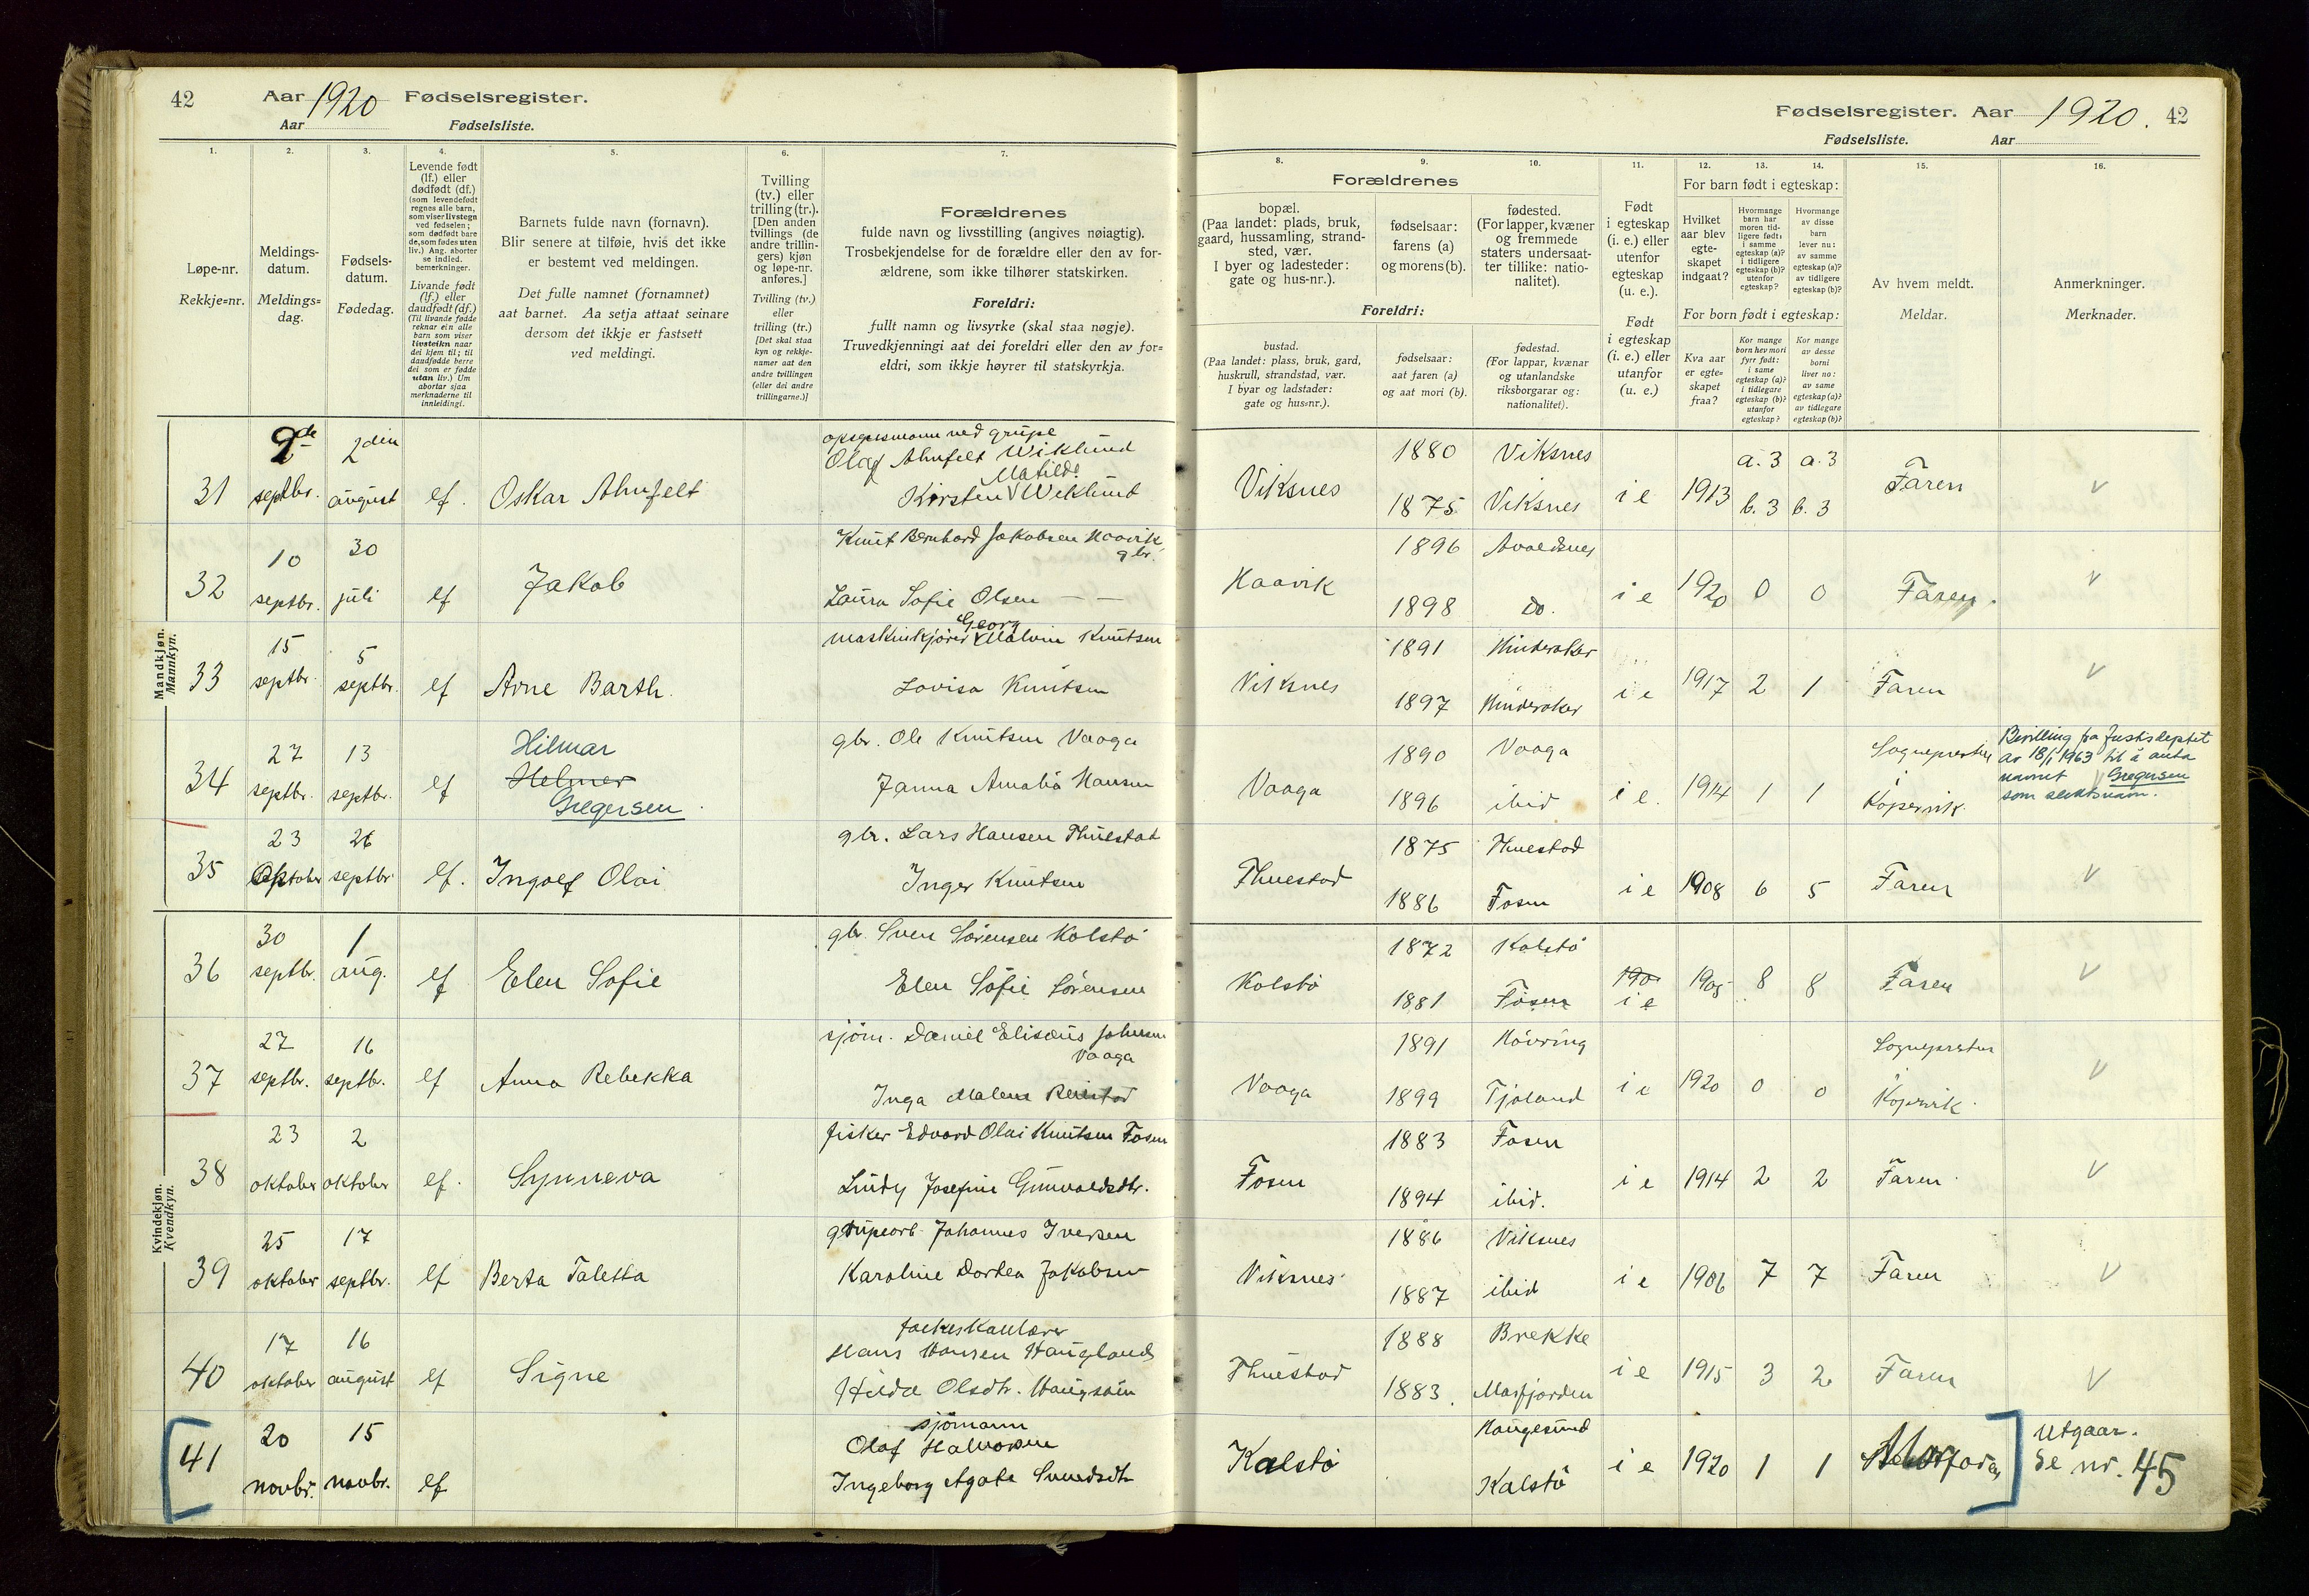 42 Aar 1920 Fødselsregister.
Aar Fødselsliste.
1.
2.
3.
4.
5.
6.
7.
Løpe-nr.
Rekkje=nr.
Meldings-
datum.
Meldings=
dag.
Fødsels-
datum.
Fødedag.
Levende født
(lf.) eller
dødfødt (df.)
(som levendefødt
regnes alle barn,
som viser livstegn
ved fødselen;
som dødfødt bare
de, som fødes uten
liv.) Ang. aborter
se indled.
bemerkninger.
Livande født
(lf.) eller
daudfødt (df.)
(Til livande fødde
reknar ein alle
barn som viser
livsteikn naar
dei kjem til; til
daudfødde berre
dei som er fødde
utan liv.) Um
abortar sjaa
merknaderne til
innleidingi.
Barnets fulde navn (fornavn).
Blir senere at tilføie, hvis det ikke
er bestemt ved meldingen.
Det fulle namnet (fornamnet)
aat barnet. Aa setja attaat seinare
dersom det ikkje er fastsett
ved meldingi.
Tvilling
(tv.) eller
trilling (tr.).
[Den anden
tvillings (de
andre trillin-
gers) kjøn
og løpe-nr.
anføres.]
Tvilling (tv.)
eller
trilling (tr.)
[Det skal staa
kyn og rekkje-
numer aat den
andre tvillingen
(eller dei andre
trillingarne.)]
Forældrenes
fulde navn og livsstilling (angives nøiagtig).
Trosbekjendelse for de forældre eller den av for-
ældrene, som ikke tilhører statskirken.
Foreldri:
fullt namn og livsyrke (skal staa nøgje).
Truvedkjenningi aat dei foreldri eller den av for=
eldri, som ikkje høyrer til statskyrkja.
Mandkjøn.
Mannkyn.
31 9de septbr. 2den august lf. Oskar Ahnfelt
ved grube
Olaf Ahnfelt Wiklund
Matilde
Kirsten Wiklund
32 10 septbr. 30 juli lf Jakob
Knut Bernhard Jakobsen Haavik
gbr.
Laura Sofie Olsen — —
33 15 septbr. 5 septbr. lf Arne Barth.
Georg
maskinkjører Malvin Knutsen
Lovisa Knutsen
34 27 septbr. 13 septbr. lf Hilmar
Helmer
Gregersen
gbr. Ole Knutsen Vaaga
Janna Amalia Hansen
35 23 Oktober 26 septbr lf. Ingolf Olai
gbr. Lars Hansen Thuestad
Inger Knutsen
Kvindekjøn.
Kvendkyn.
36 30 septbr. 1 aug. lf Elen Sofie
gbr. Sven Sørensen Kolstø
Elen Sofie Sørensen
37 27 septbr. 16 septbr. lf Anna Rebekka
sjøm. Daniel Elisæus Johnsen
Vaaga
Inga Malene
38 23 oktober 2 oktober lf. Synneva
fisker Edvard Olai Knutsen Fosen
Lindy Josefine Gunvaldsdtr.
39 25 oktober 17 septbr. lf Berta Taletta
grubearb. Johannes Iversen
Karoline Dortea Jakobsen
40 17 oktober 16 august lf Signe
Hans Hansen Haugland
Hilda Olsdtr.
41 20 novbr. 15 novbr. lf
sjömann
Olaf Halvorsen
Ingeborg Agate Svendsdtr
Fødselsregister. Aar 1920. 42
Fødselsliste. Aar
8.
9.
10.
11.
12.
13.
14.
15.
16.
Forældrenes
bopæl.
(Paa landet: plads, bruk,
gaard, hussamling, strand-
sted, vær.
I byer og ladesteder:
gate og hus-nr.).
fødselsaar:
farens (a)
og morens (b).
fødested.
(For lapper, kvæner
og fremmede
staters undersaat-
ter tillike: natio-
nalitet).
Foreldri:
bustad.
(Paa landet: plass, bruk, gard,
huskrull, strandstad, vær.
I byar og ladstader:
gate og hus=nr.).
fødselsaar:
aat faren (a)
og aat mori (b).
fødestad.
(For lappar, kvænar
og utanlandske
riksborgarar og:
nationalitet).
Født
i egteskap
(i. e.) eller
utenfor
egteskap
(u. e.).
Født
i egteskap
(i. e.) eller
utanfor
(u. e.)
For barn født i egteskap:
Hvilket
aar blev
egte-
skapet
indgaat?
Hvormange
barn har
moren tid-
ligere født:
i samme
egteskap (a)?
i tidligere
egteskap (b)?
utenfor
egteskap?
Hvormange
av disse
barn
lever nu:
av samme
egteskap (a)?
av tidligere
egteskap (b)?
For born født i egteskap:
Kva aar
er egte=
skapet
fraa?
Kor mange
born hev mori
fyrr født:
i same
egteskap (a)?
i tidlegare
egteskap (b)?
utanfor
egteskap?
Kor mange
av desse
borni
liver no:
av same
egteskap (a)?
av tidlegare
egteskap (b)?
Av hvem meldt.
Meldar.
Anmerkninger.
Merknader.
Viksnes 1880 Viksnes
1875 Viksnes i e 1913 a. 3 a. 3
b. 3 b. 3 Faren V
Haavik 1896 Avaldsnes
1898 do. i e 1920 0 0 Faren. V
Viksnes 1891 Hinderaker
1897 Hinderaker i e 1917 2 1 Faren V
Vaaga 1890 Vaaga
1896 ibid i e. 1914 1 1 Sognepresten
Kopervik.
Bevilling fra Justisdeptet
av 18/1 1963 til å anta
navnet Gregersen
som slektsnavn.
Thuestad 1875 Thuestad
1886 Fosen i e 1908 6 5 Faren V
Kolstø 1872 Kolstø
1881 Fosen 190 i e 1905 8 8 Faren V
Vaaga 1891 Høvring
1899 Tjøland i e 1920 0 0 Sognepresten
Kopervik. V
Fosen 1883 Fosen
1894 ibid. i e 1914 2 2 Faren V
Viksnes 1886 Viksnes
1887 ibid i e 1906 7 7 Faren V
Thuestad 1888 Brekke
1883. Masfjorden i e 1915 3 2 Faren V
Kalstø Haugesund
Kalstø i e 1920 1 1
Utgaar.
Se nr. 45